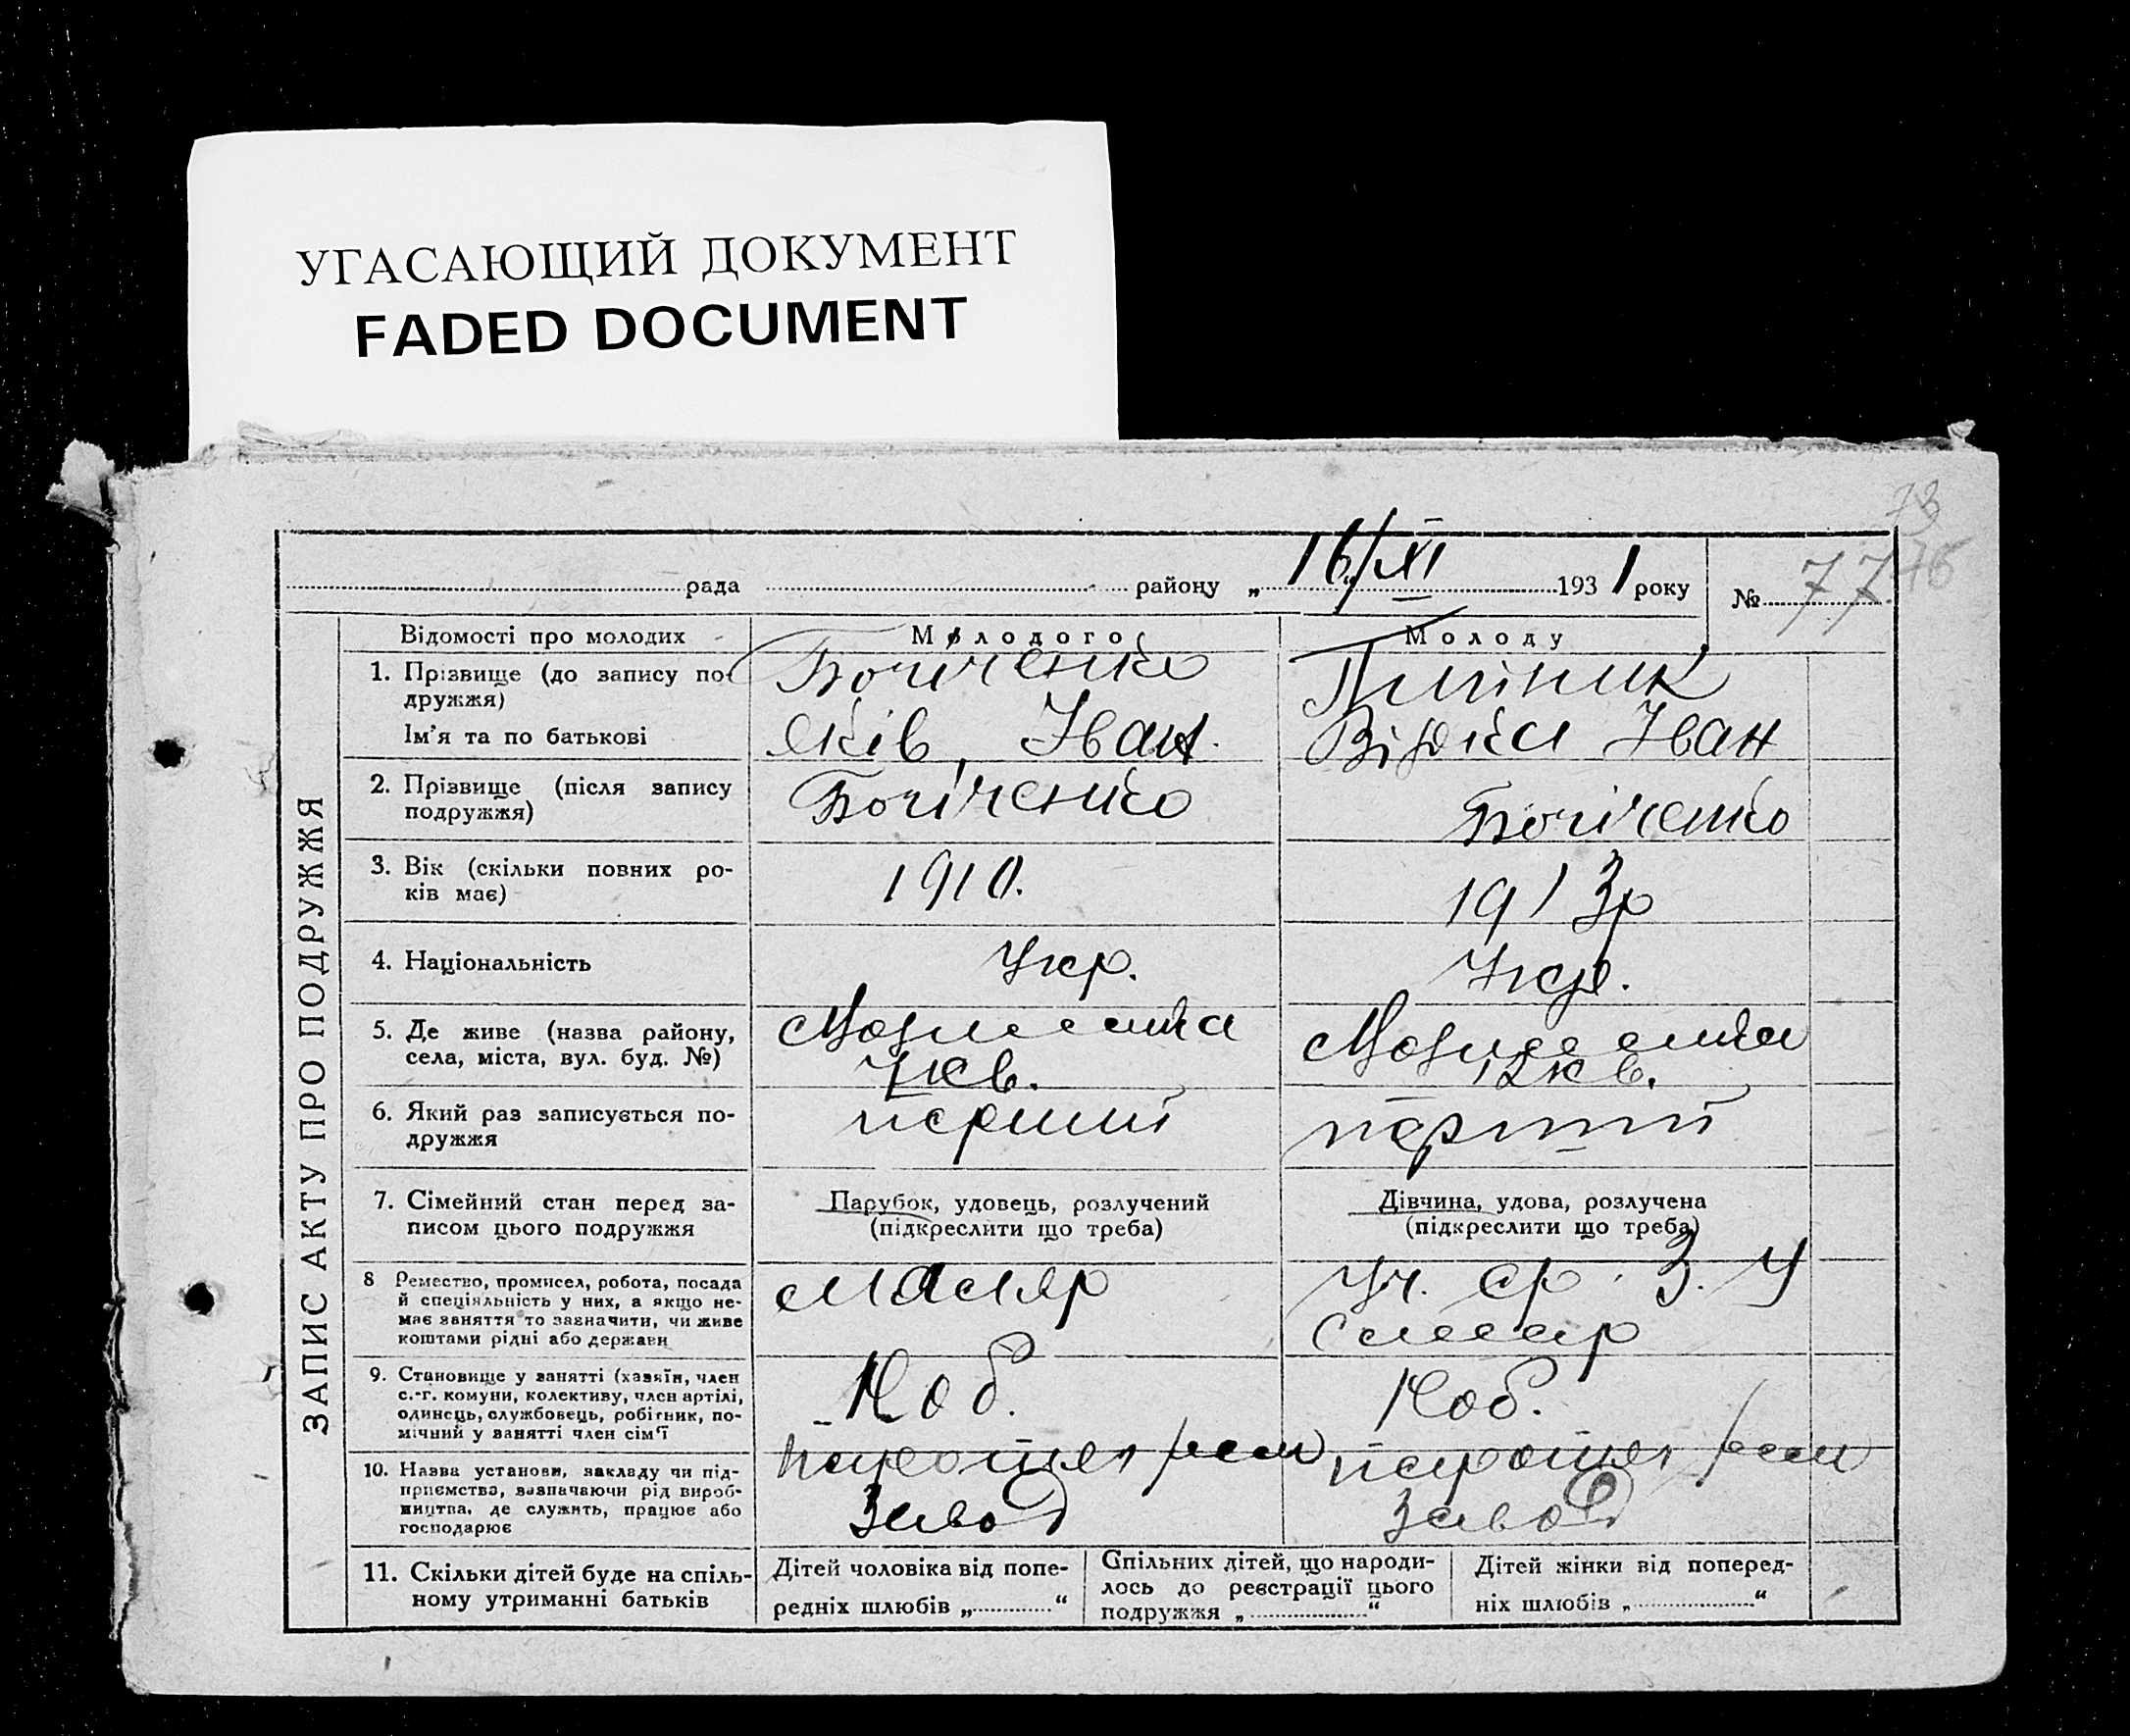 УГАСАЮЩИЙ ДОКУМЕНТ
FADED DOCUMENT
73
76
рада району „16/XI 1931 року № 77
ЗАПИС АКТУ ПРО ПОДРУЖЖЯ
Відомості про молодих
Молодого
Молоду
1. Прізвище (до запису по-
дружжя)
Ім'я та по батькові
Яків, Іван.
Іван
2. Прізвище (після запису
подружжя)
3. Вік (скільки повних ро-
ків має)
1910.
1913р
4. Національність
Укр.
Укр.
5. Де живе (назва району,
села, міста, вул. буд. №)
кв.
кв.
6. Який раз записується по-
дружжя
перший
перший
7. Сімейний стан перед за-
писом цього подружжя
Парубок, удовець, розлучений
(підкреслити що треба)
Дівчина, удова, розлучена
(підкреслити що треба)
8 Ремество, промисел, робота, посада
й спеціяльність у них, а якщо не-
має заняття то зазначити, чи живе
коштами рідні або держави
маляр
Уч. ср. З. У
слесар
9. Становище у занятті (хазяїн, член
с.-г. комуни, колективу, член артілі,
одинець, службовець, робітник, по-
мічний у занятті член сім'ї
Роб.
Роб.
10. Назва установи, закладу чи під-
приємства, зазначаючи рід вироб-
ництва, де служить, працює або
господарює
завод
завод
11. Скільки дітей буде на спіль-
ному утриманні батьків
Дітей чоловіка від попе-
редніх шлюбів „ “
Спільних дітей, що народи-
лось до реєстрації цього
подружжя „ “
Дітей жінки від поперед-
ніх шлюбів „ “